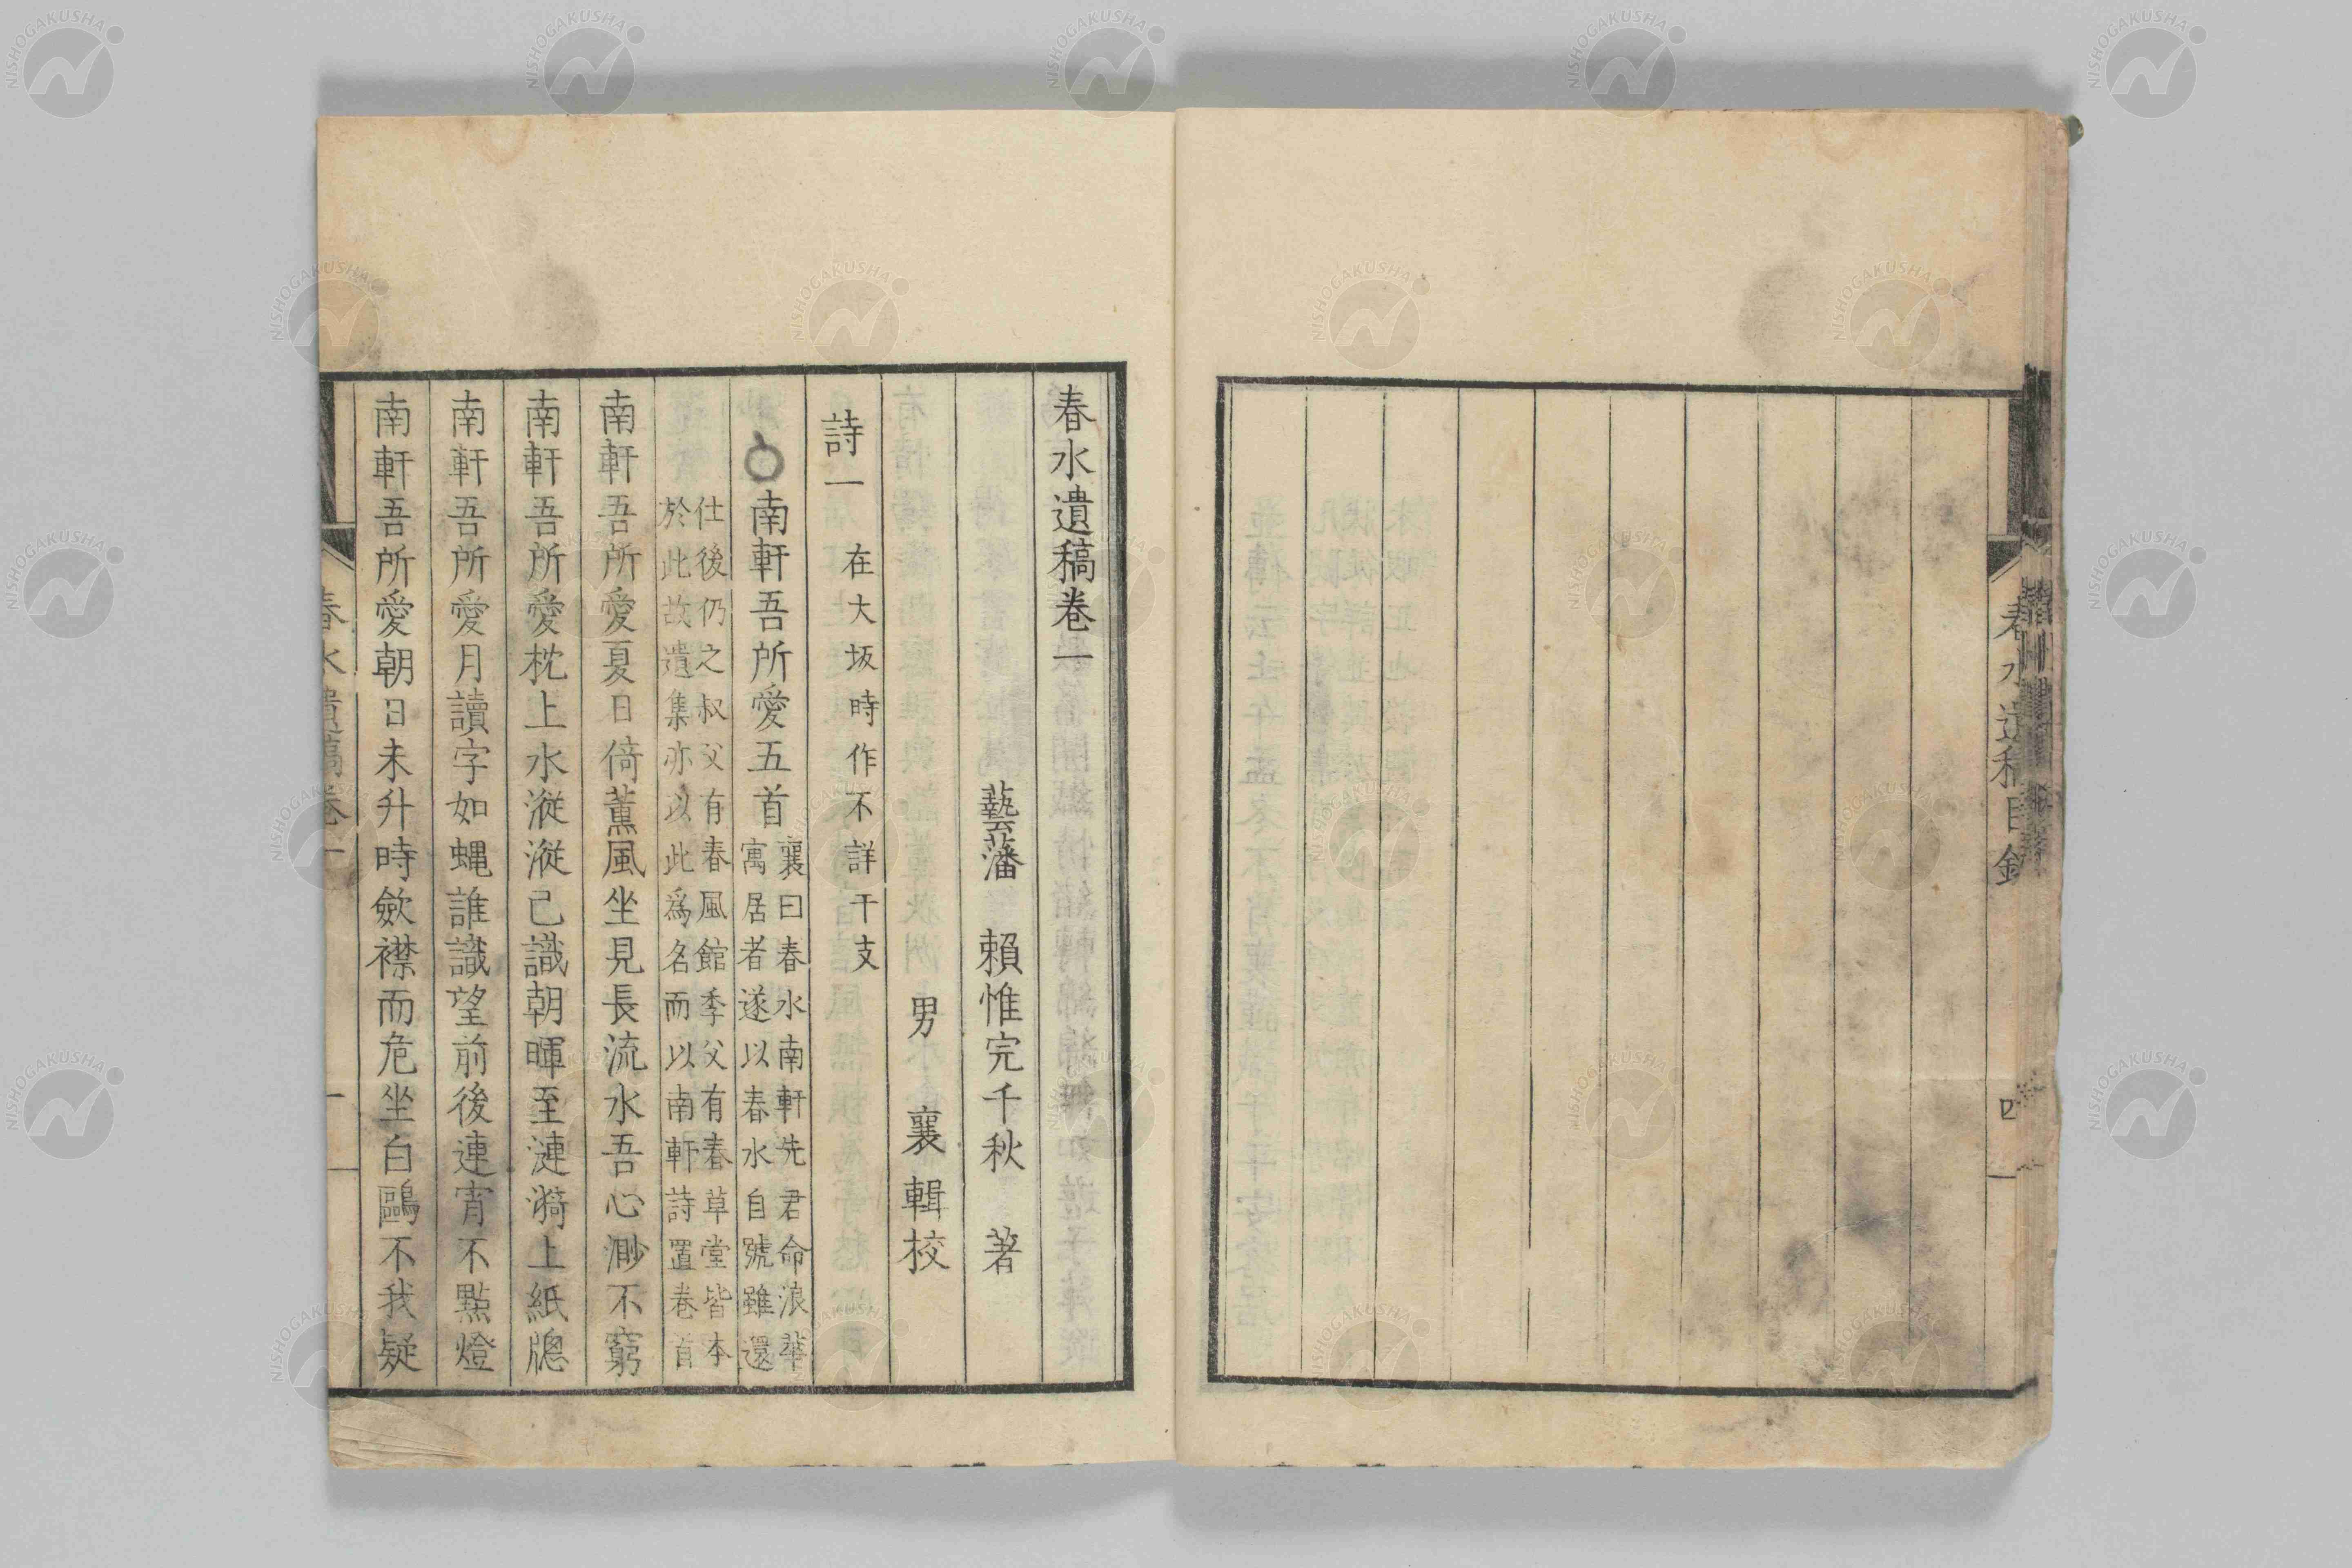 春水遺稿目錄
四
春水遺稿卷一
藝藩 賴惟完千秋 著
男 襄 輯校
詩一 在大坂時作不詳干支
南軒吾所愛五首 襄曰春水南軒先君命浪華
寓居者遂以春水自號雖還
仕後仍之叔父有春風館季父有春草堂皆本
於此故遺集亦以此為名而以南軒詩置卷首
南軒吾所愛夏日倚薰風坐見長流水吾心渺不窮
南軒吾所愛枕上水漎漎已識朝暉至漣漪上紙牕
南軒吾所愛月讀字如蠅誰識望前後連宵不點燈
南軒吾所愛朝日未升時斂襟而危坐白鷗不我疑
春水遺稿卷一
一
NISHOGAKUSHA